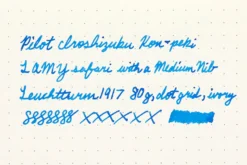 Pilot Iroshizuku Kon-peki
LAMY safari with a Medium Nib
Leuchtturm1917 80g, dot grid, ivory